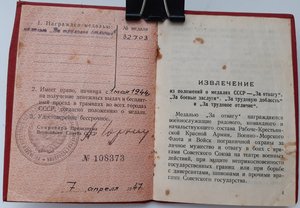 1. Награжден медалью:
медалью „За трудовое отличие"
№ медали
32703
2. Имеет право, начиная с 1 мая 1944
на получение денежных выдач и бесплатный
проезд в трамваях во всех городах
СССР.
3. Удостоверение бессрочное.
Секретарь Президиума
№ 108373
7 апреля 1947
ИЗВЛЕЧЕНИЕ
из положений о медалях СССР — „За отвагу",
„За боевые заслуги", „За трудовую доблесть"
и „За трудовое отличие".
Медалью „За отвагу" награждаются
военнослужащие рядового, командного и
начальствующего состава Рабоче-Крестьян-
ской Красной Армии, Военно-Морского
Флота и Войск пограничной охраны за
личное мужество и отвагу в боях с вра-
гами Советского Союза на театре военных
действий, при защите неприкосновенности
государственных границ или при борьбе
с диверсантами, шпионами и прочими вра-
гами Советского государства.